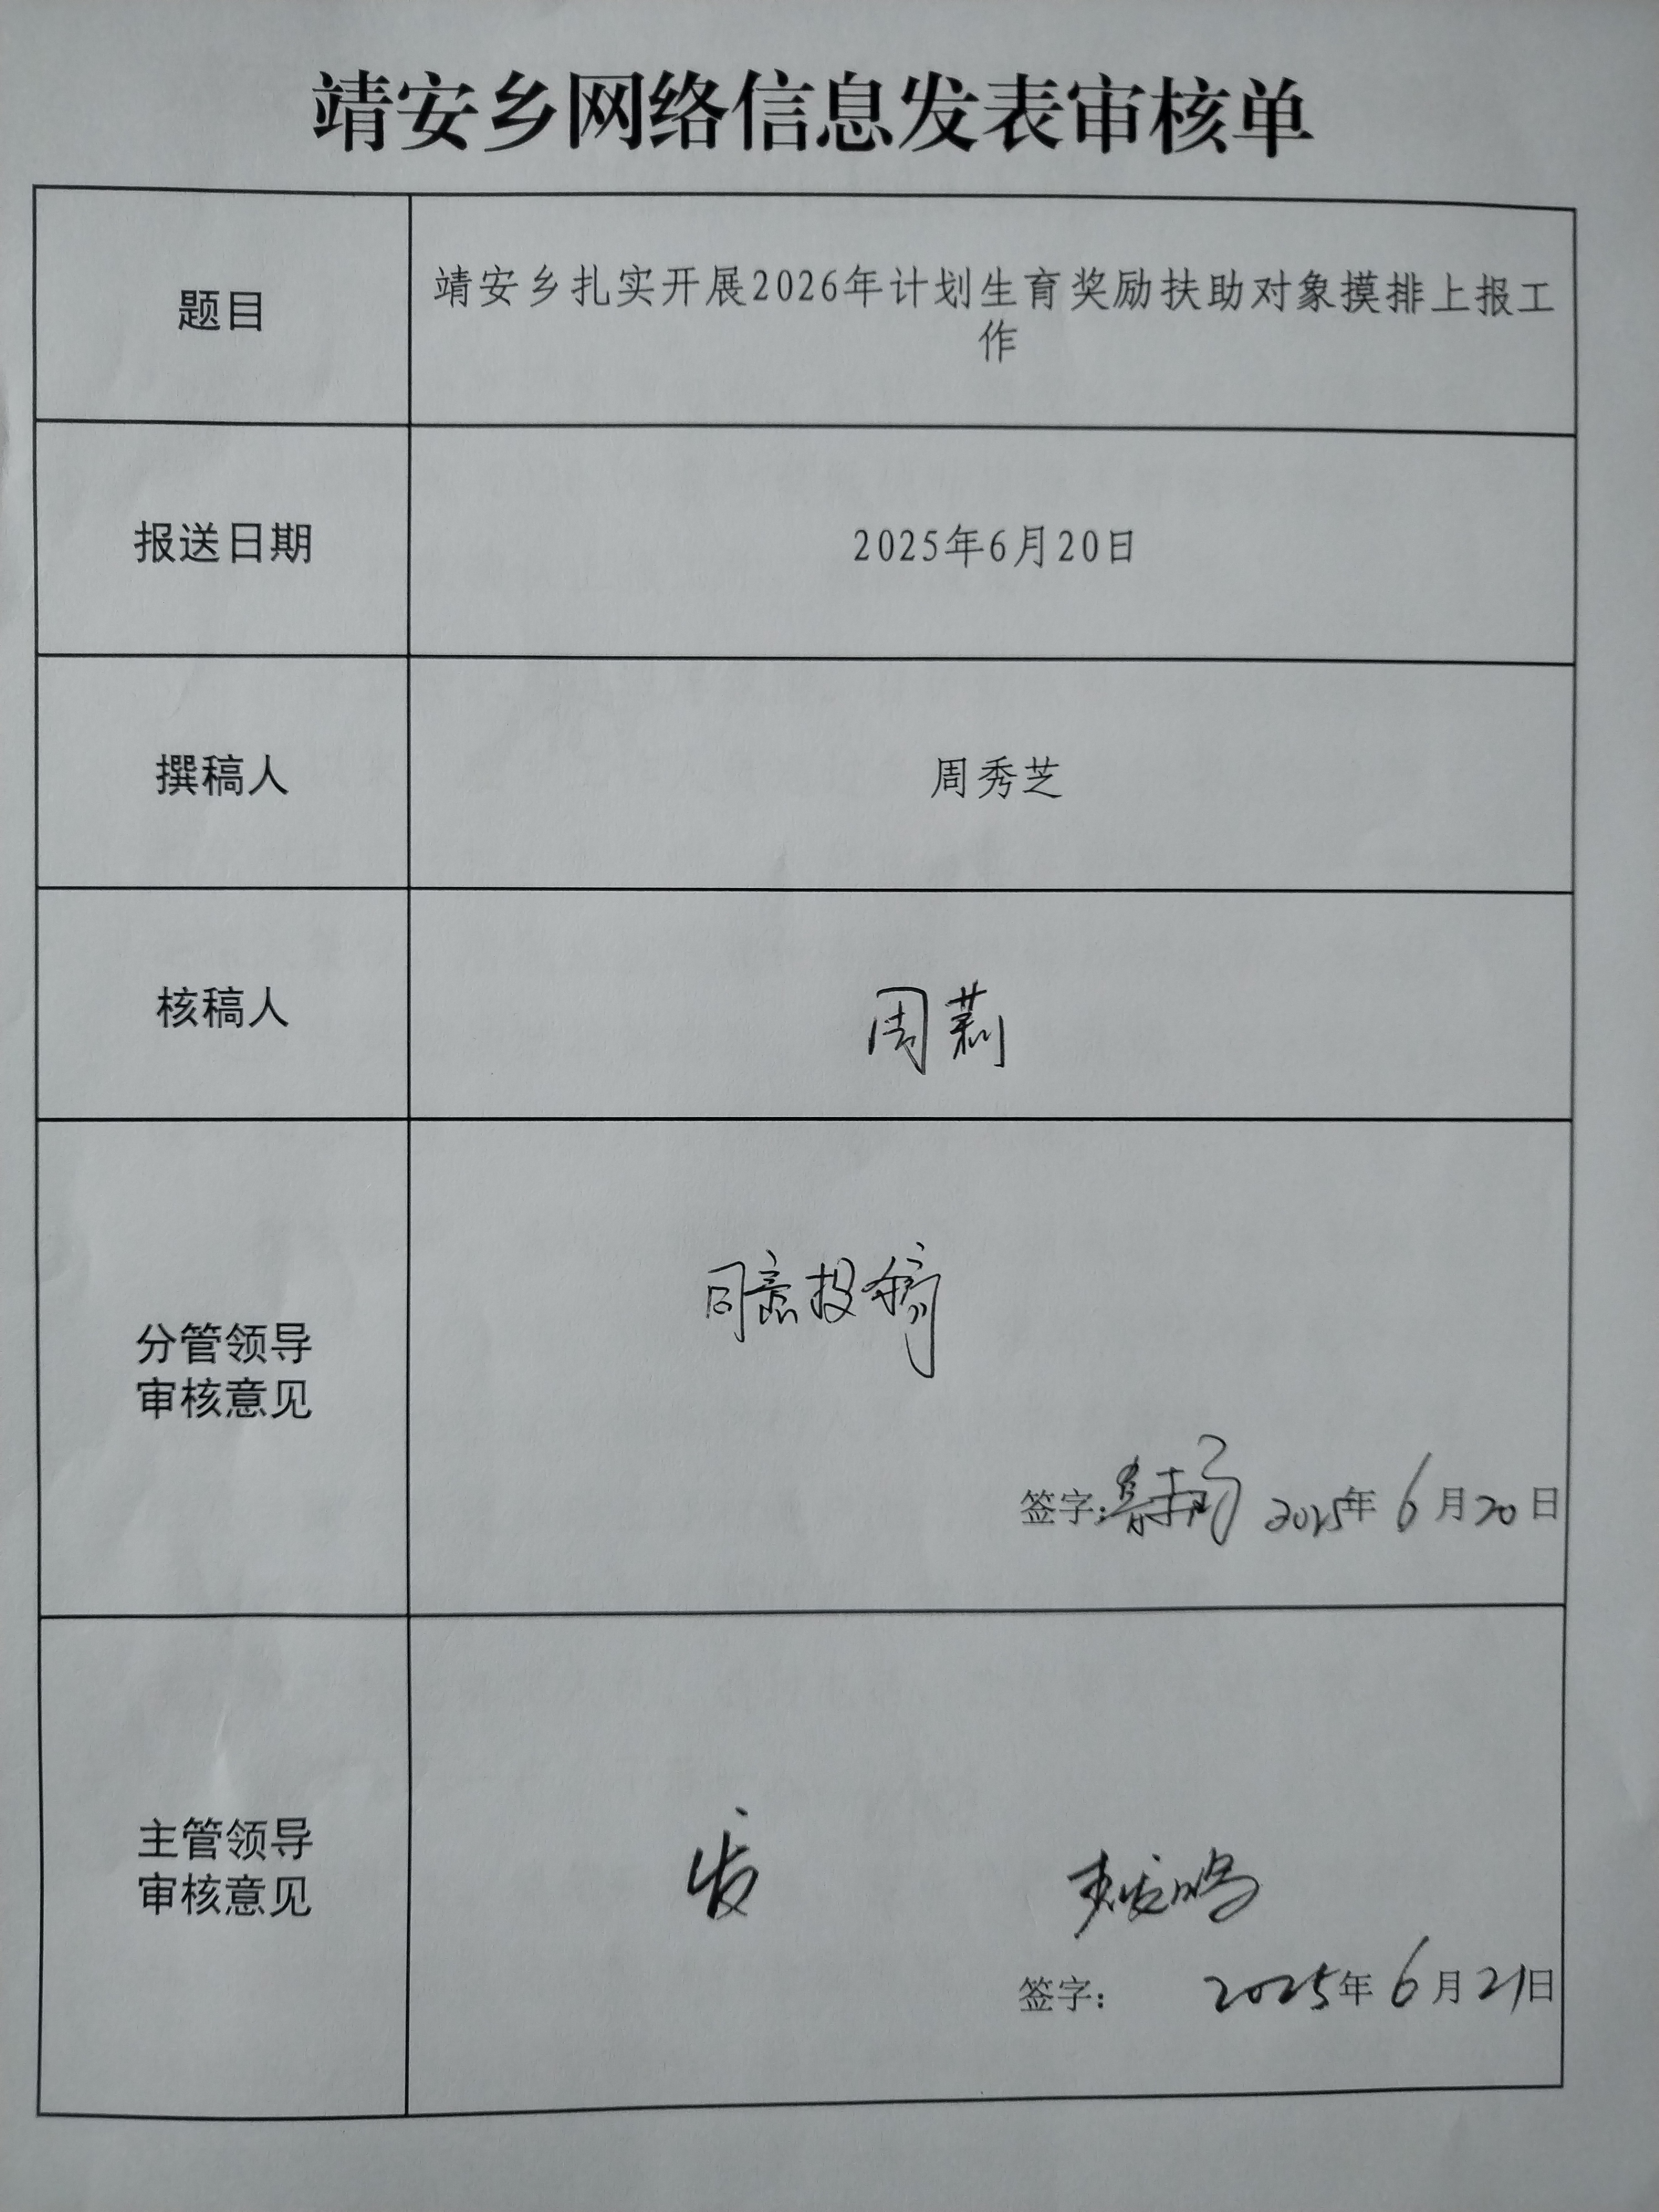 靖安乡网络信息发表审核单
题目
靖安乡扎实开展2026年计划生育奖励扶助对象摸排上报工
作
报送日期
2025年6月20日
撰稿人
周秀芝
核稿人
周莉
分管领导
审核意见
同意投稿
签字: 2025年6月20日
主管领导
审核意见
发
签字: 2025年6月21日